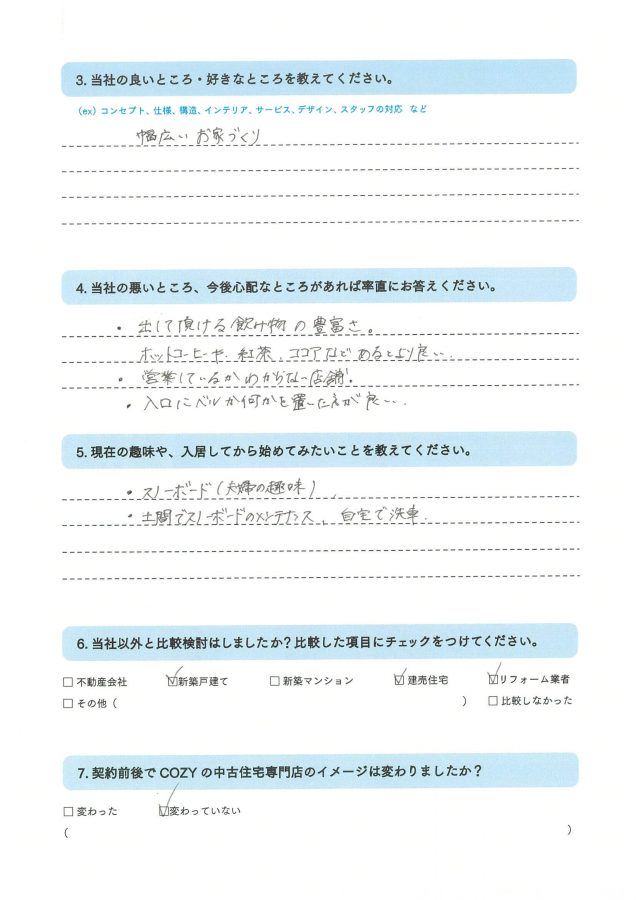 3. 当社の良いところ・好きなところを教えてください。
（ex）コンセプト、仕様、構造、インテリア、サービス、デザイン、スタッフの対応 など
幅広い お家づくり
4. 当社の悪いところ、今後心配なところがあれば率直にお答えください。
・出して頂ける飲み物の豊富さ。
ホットコーヒーや、紅茶、ココアなどあるとより良い。
・営業しているかわからない店舗。
・入口にベルか何かを置いた方が良い。
5. 現在の趣味や、入居してから始めてみたいことを教えてください。
・スノーボード（夫婦の趣味）、
・土間でスノーボードのメンテナンス、自宅で洗車.
6. 当社以外と比較検討はしましたか？比較した項目にチェックをつけてください。
□ 不動産会社 ☑新築戸建て □ 新築マンション ☑ 建売住宅 ☑リフォーム業者
□ その他（ ） □ 比較しなかった
7. 契約前後で COZY の中古住宅専門店のイメージは変わりましたか？
□ 変わった ☑変わっていない
（ ）